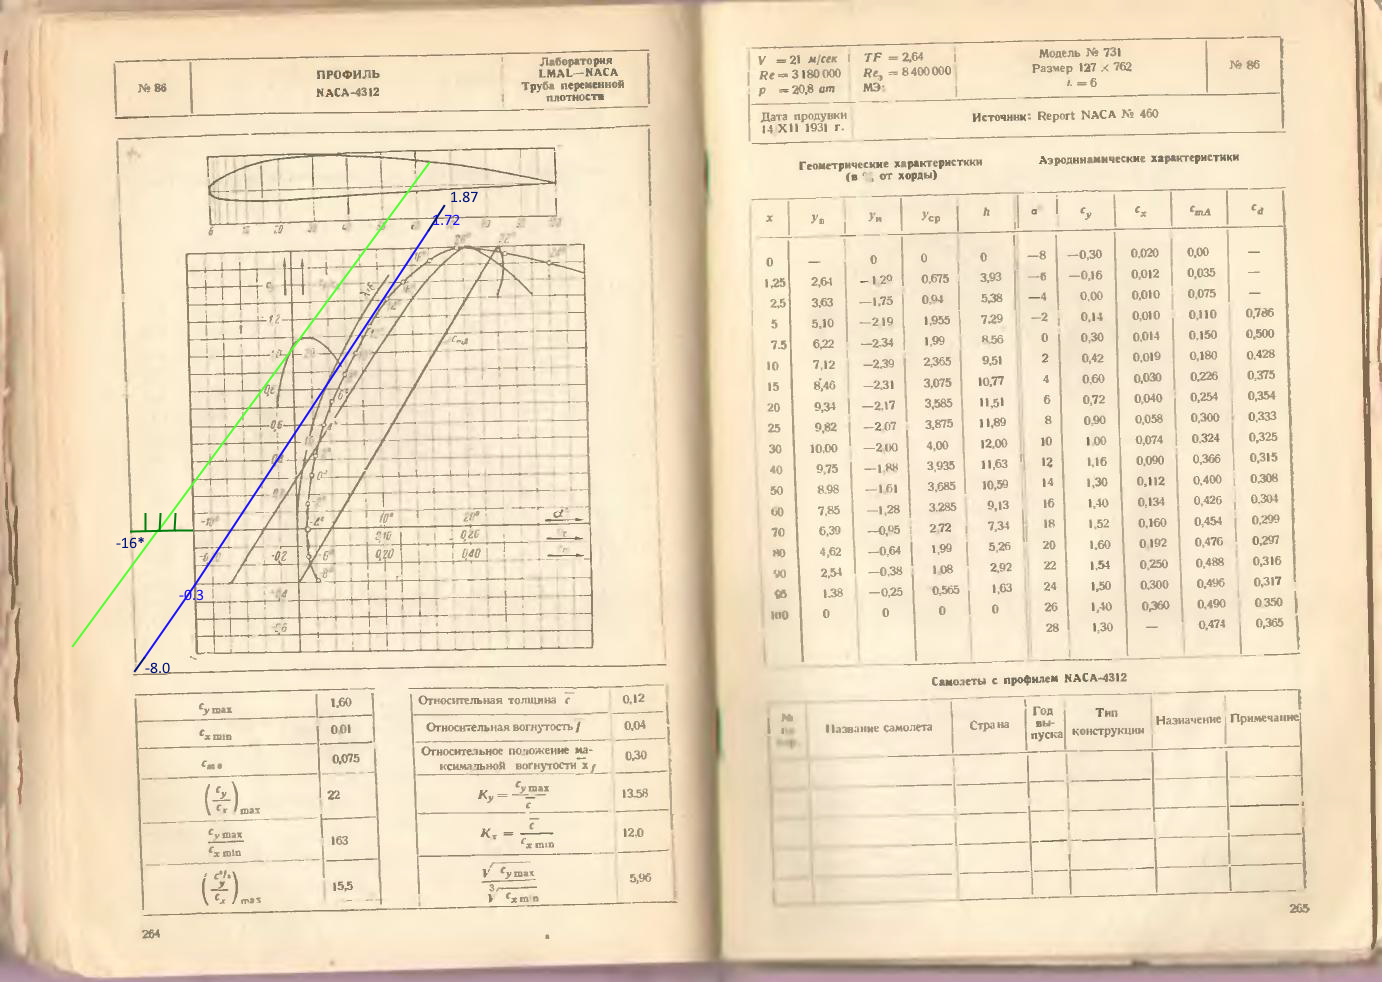 № 86
ПРОФИЛЬ
NACA-4312
Лаборатория
LMAL—NACA
Труба переменной
плотности
1.87
1.72
-16*
-0.3
-8.0
c y max 1,60
c x min 0,01
c m o 0,075
(c y / c x) max 22
c y max / c x min 163
(c y ³/² / c x) max 15,5
Относительная толщина c 0,12
Относительная вогнутость f 0,04
Относительное положение ма-
ксимальной вогнутости x f 0,30
K y = c y max / c 13.58
K x = c / c x min 12.0
√ c y max / ³√ c x min 5,96
264
V = 21 м/сек TF = 2,64 Модель № 731 № 86
Re = 3 180 000 Re э = 8 400 000 Размер 127 × 762
p = 20,8 ат МЭ: λ = 6
Дата продувки
14 XII 1931 г.
Источник: Report NACA № 460
Геометрические характеристики
(в %, от хорды)
Аэродинамические характеристики
x y в y н y ср h α° c y c x c mA c d
0 — 0 0 0 —8 —0,30 0,020 0,00 —
1,25 2,64 —1,29 0,675 3,93 —6 —0,16 0,012 0,035 —
2,5 3,63 —1,75 0,94 5,38 —4 0,00 0,010 0,075 —
5 5,10 —2 19 1,955 7,29 —2 0,14 0,010 0,110 0,786
7.5 6,22 —2.34 1,99 8,56 0 0,30 0,014 0,150 0,500
10 7,12 —2,39 2,365 9,51 2 0,42 0,019 0,180 0.428
15 8,46 —2,31 3,075 10,77 4 0,60 0,030 0,226 0,375
20 9,34 —2,17 3,585 11,51 6 0,72 0,040 0,254 0,354
25 9,82 —2,07 3,875 11,89 8 0,90 0,058 0,300 0,333
30 10,00 —2,00 4,00 12,00 10 1.00 0,074 0.324 0,325
40 9,75 —1,88 3,935 11,63 12 1,16 0,090 0,366 0,315
50 8.98 —1,61 3,685 10,59 14 1,30 0,112 0,400 0,308
60 7,85 —1,28 3.285 9,13 16 1,40 0,134 0,426 0,304
70 6,39 —0,95 2,72 7,34 18 1,52 0,160 0,454 0,299
80 4,62 —0,64 1,99 5,26 20 1,60 0,192 0,476 0,297
90 2,54 —0,38 1,08 2,92 22 1,54 0,250 0,488 0,316
95 1.38 —0,25 0,565 1,63 24 1,50 0,300 0,496 0,317
100 0 0 0 0 26 1,40 0,360 0,490 0.350
28 1,30 — 0,474 0,365
Самолеты с профилем NACA-4312
№ Название самолета Страна Год вы-пуска Тип конструкции Назначение Примечание
265